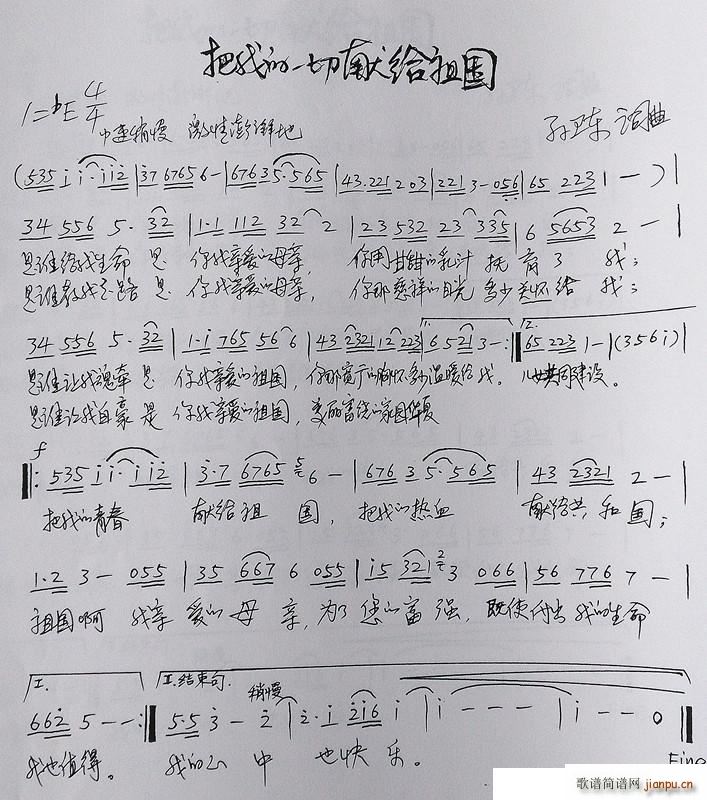 把我的一切献给祖国
1=♭E 4/4
中速稍慢 激情澎湃地
孙卫东 词曲
(535 i i·i i2 | 37 6765 6- | 676 3 5·565 | 43·221 2 03 | 221 3-056 | 65 223 1 — ) |
34 556 5· 32 | 1·1 112 32 2 | 23 532 23 335 | 6 5653 2 — |
是谁给我生命 是 你我亲爱的母亲, 你用甘甜的乳汁 抚育了 我;
是谁教我走路 是 你我亲爱的母亲, 你那慈祥的目光 多少关怀给 我;
34 556 5· 32 | 1·i 765 56 6 | 43 2321 12 223 | 6 521 3- :‖ 2. 65 223 1- | (356i) |
是谁让我魂牵 是 你我亲爱的祖国, 你那宽广的胸怀多少温暖给我。 儿女共同建设。
是谁让我自豪 是 你我亲爱的祖国, 美丽富饶的家园华夏
f
‖: 535 i i·i i2 | 3·7 6765 6 — | 676 3 5·565 | 43 2321 2 — |
把我的青春 献给祖 国, 把我的热血 献给共和国;
1·2 3 — 055 | 35 667 6 055 | i5 321 3 066 | 56 776 7 — |
祖国啊 我亲爱的母亲, 为了您的富强, 既使付出我的生命
I. II.结束句. 稍慢
662 5 -- :‖ 5·5 3 — 2 | 2·i 2i6 i | i --- | i -- 0 ‖
我也值得。 我的心 中 也快乐。
Fine
歌谱简谱网
jianpu.cn